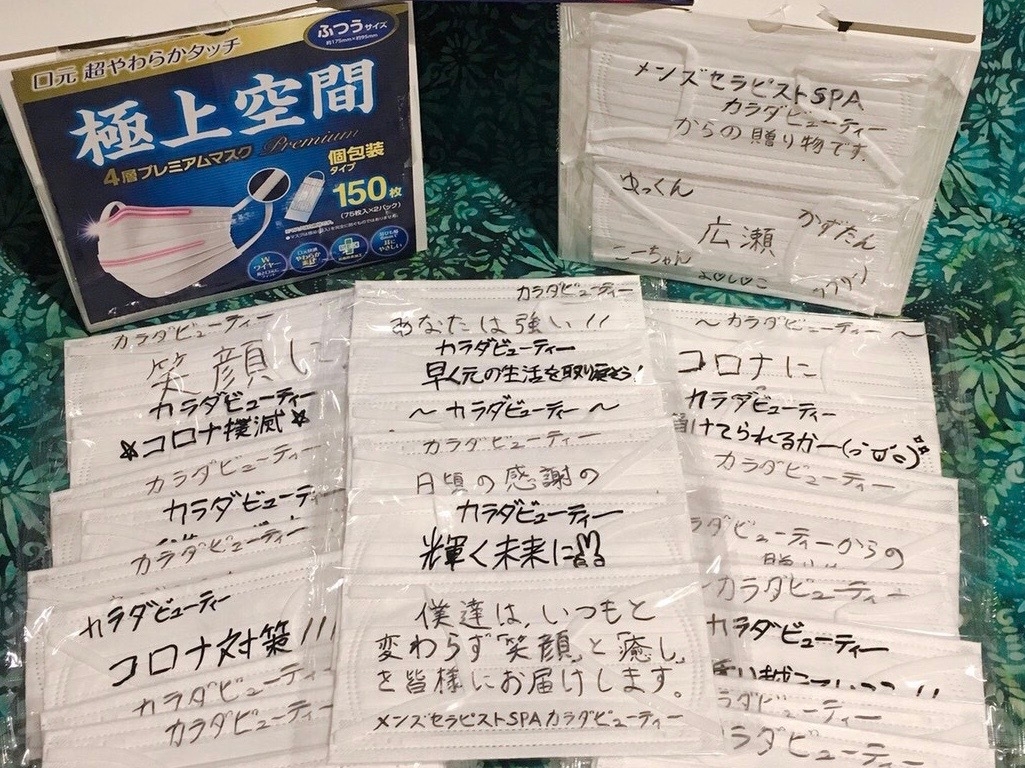 口元 超やわらかタッチ
ふつうサイズ
約175mm×約95mm
極上空間
Premium
4層プレミアムマスク
個包装
タイプ
150枚
(75枚入×2パック)
Wワイヤー
メンズセラピストSPA
カラダビューティー
からの贈り物です。
ゆっくん
かずたん
広瀬
こーちゃん
カラダビューティー
笑顔に
カラダビューティー
☆コロナ撲滅☆
カラダビューティー
カラダビューティー
カラダビューティー
カラダビューティー
コロナ対策!!!
カラダビューティー
カラダビューティー
カラダビューティー
あなたは強い!!
カラダビューティー
早く元の生活を取り戻そう!
〜カラダビューティー〜
カラダビューティー
日頃の感謝の
カラダビューティー
輝く未来に
僕達は、いつもと
変わらず「笑顔」と「癒し」
を皆様にお届けします。
メンズセラピストSPAカラダビューティー
〜カラダビューティー〜
コロナに
カラダビューティー
負けてられるかー
カラダビューティー
カラダビューティーからの
カラダビューティー
カラダビューティー
カラダビューティー
カラダビューティー